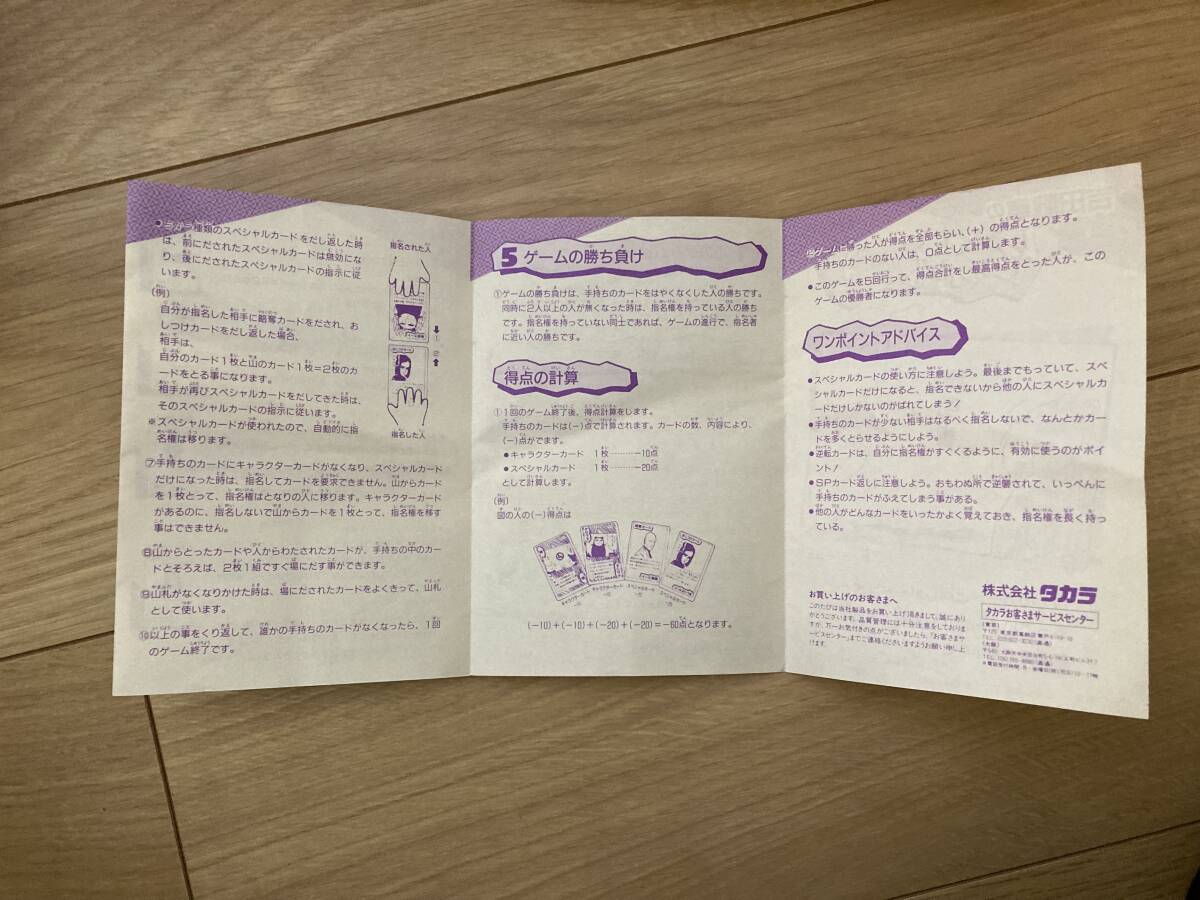 ●ちがう種類のスペシャルカードをだし返した時
は、前にだされたスペシャルカードは無効にな
り、後にだされたスペシャルカードの指示に従
います。
(例)
自分が指名した相手に略奪カードをだされ、お
しつけカードをだし返した場合、
相手は、
自分のカード1枚と山のカード1枚=2枚のカ
ードをとる事になります。
相手が再びスペシャルカードをだしてきた時は、
そのスペシャルカードの指示に従います。
※スペシャルカードが使われたので、自動的に指
名権は移ります。
指名された人
①
②
指名した人
⑦手持ちのカードにキャラクターカードがなくなり、スペシャルカード
だけになった時は、指名してカードを要求できません。山からカード
を1枚とって、指名権はとなりの人に移ります。キャラクターカード
があるのに、指名しないで山からカードを1枚とって、指名権を移す
事はできません。
⑧山からとったカードや人からわたされたカードが、手持ちの中のカー
ドとそろえば、2枚1組ですぐ場にだす事ができます。
⑨山札がなくなりかけた時は、場にだされたカードをよくきって、山札
として使います。
⑩以上の事をくり返して、誰かの手持ちのカードがなくなったら、1回
のゲーム終了です。
5 ゲームの勝ち負け
①ゲームの勝ち負けは、手持ちのカードをはやくなくした人の勝ちです。
同時に2人以上の人が無くなった時は、指名権を持っている人の勝ち
です。指名権を持っていない同士であれば、ゲームの進行で、指名者
に近い人の勝ちです。
得点の計算
①1回のゲーム終了後、得点計算をします。
手持ちのカードは(−)点で計算されます。カードの数、内容により、
(−)点がでます。
●キャラクターカード 1枚………−10点
●スペシャルカード 1枚………−20点
として計算します。
(例)
図の人の(−)得点は
キャラクターカード
キャラクターカード
スペシャルカード
スペシャルカード
(−10)+(−10)+(−20)+(−20)=−60点となります。
②ゲームに勝った人が得点を全部もらい、(+)の得点となります。
手持ちのカードのない人は、0点として計算します。
●このゲームを5回行って、得点合計をし最高得点をとった人が、この
ゲームの優勝者になります。
ワンポイントアドバイス
●スペシャルカードの使い方に注意しよう。最後までもっていて、スペ
シャルカードだけになると、指名できないから他の人にスペシャルカ
ードだけしかないのがばれてしまう!
●手持ちのカードが少ない相手はなるべく指名しないで、なんとかカー
ドを多くとらせるようにしよう。
●逆転カードは、自分に指名権がすぐくるように、有効に使うのがポイ
ント!
●SPカード返しに注意しよう。おもわぬ所で逆襲されて、いっぺんに
手持ちのカードがふえてしまう事がある。
●他の人がどんなカードをいったかよく覚えておき、指名権を長く持っ
ている。
お買い上げのお客さまへ
このたびは当社製品をお買い上げ頂きまして、誠にあり
がとうございます。品質管理には十分注意をしております
が、万一お気付きの点がございましたら、「お客さまサ
ービスセンター」までご連絡くださいますようお願い申し上
げます。
株式会社タカラ
タカラお客さまサービスセンター
(東京)
(大阪)